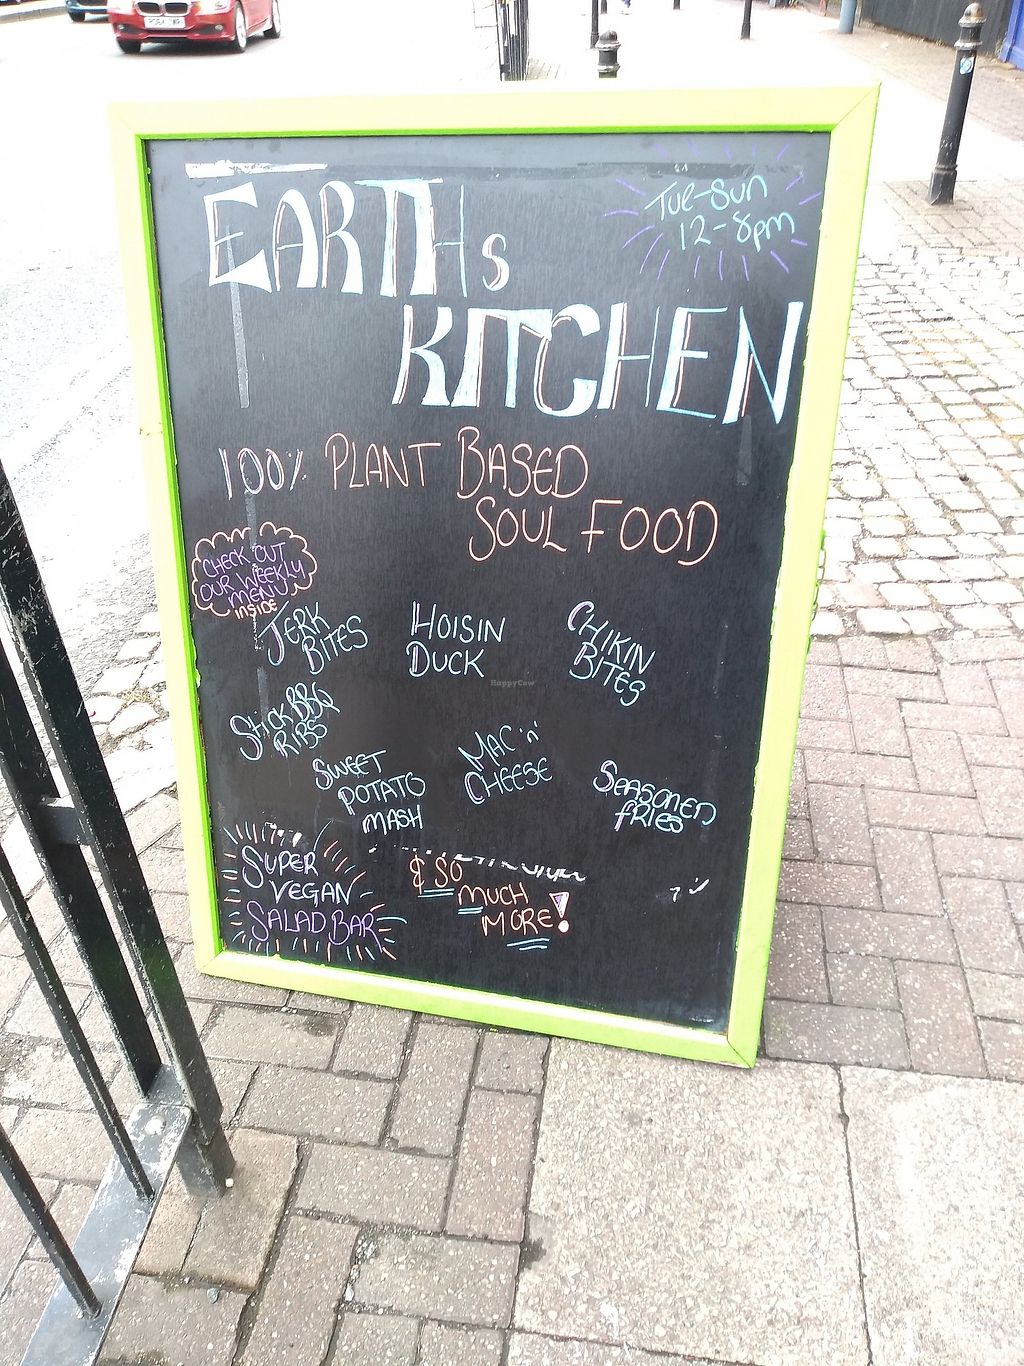 EARTHs
KITCHEN
TUE-SUN
12-8pm
100% PLANT BASED
SOUL FOOD
CHECK OUT
OUR WEEKLY
MENU
INSIDE
JERK
BITES
HOISIN
DUCK
CHIKIN
BITES
BBQ
RIBS
SWEET
POTATO
MASH
MAC 'n'
CHEESE
SEASONED
FRIES
SUPER
VEGAN
SALAD BAR
& SO
MUCH
MORE!
HappyCow